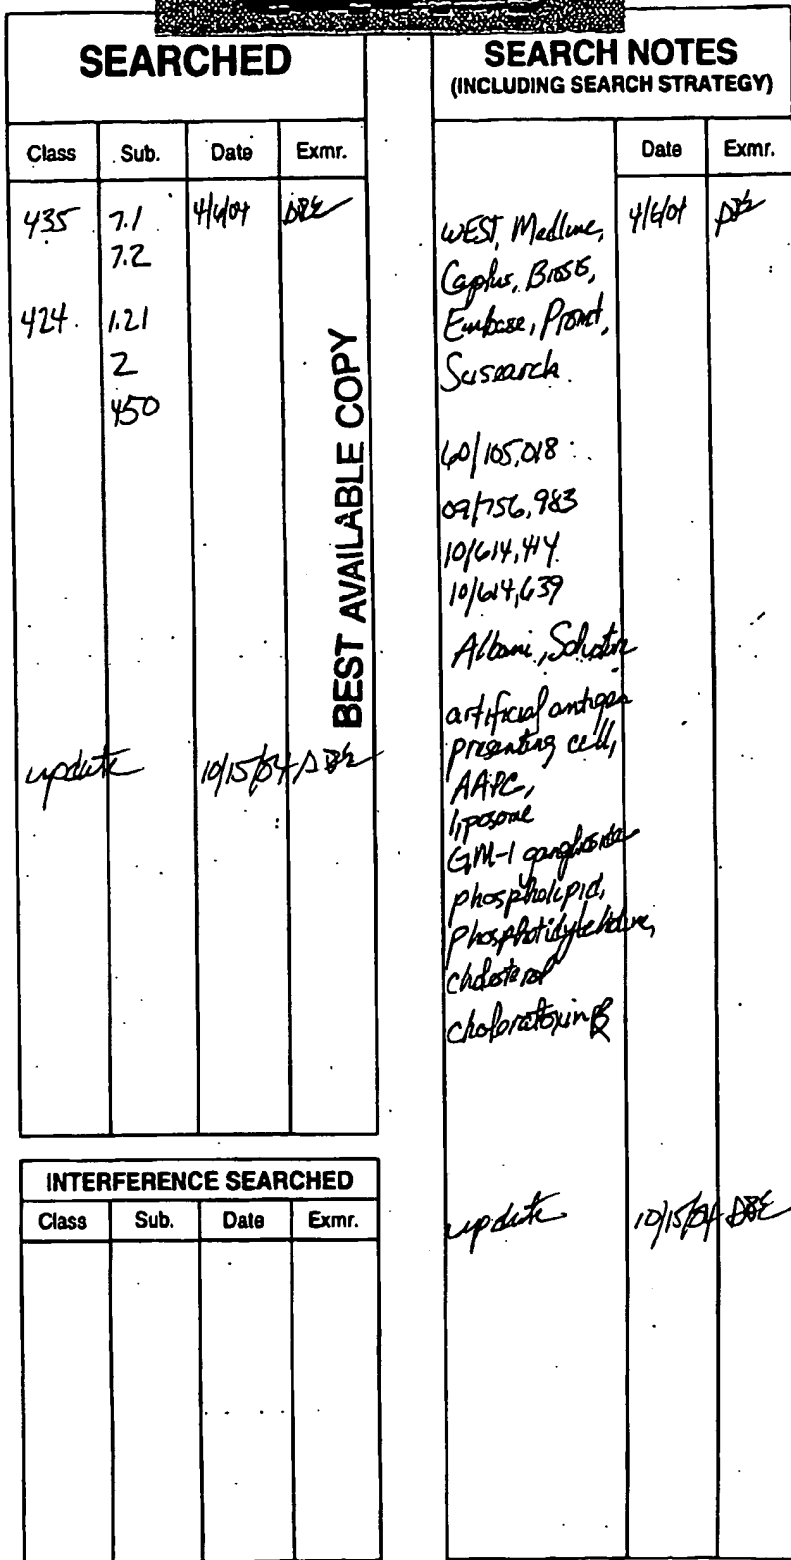 SEARCHED
Class Sub. Date Exmr.
435 7.1 4/6/04 DBE
7.2
424 1.21
2
450
update 10/15/04 DBE
BEST AVAILABLE COPY
INTERFERENCE SEARCHED
Class Sub. Date Exmr.
SEARCH NOTES
(INCLUDING SEARCH STRATEGY)
Date Exmr.
WEST, Medline, 4/6/04 DBE
Caplus, Biosis,
Embase, Promt,
Scisearch.
60/105,018
09/756,983
10/614,414
10/614,639
Albani, Salvatore
artificial antigen
presenting cell,
AAPC,
liposome
GM-1 ganglioside
phospholipid,
phosphotidylcholine,
cholesterol
choleratoxin B
update 10/15/04 DBE